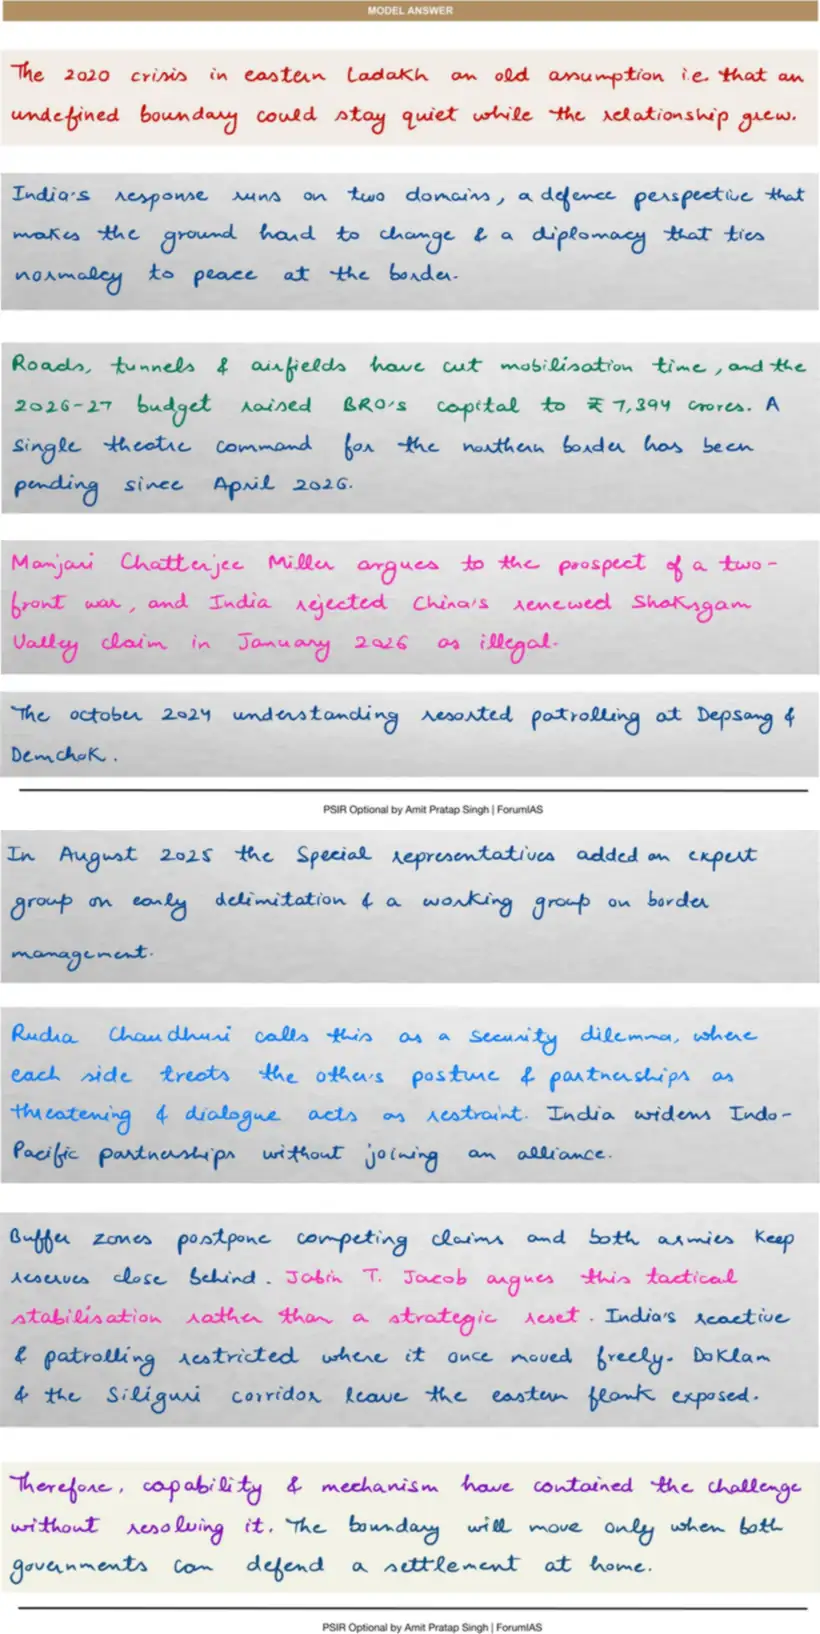 MODEL ANSWER
The 2020 crisis in eastern Ladakh an old assumption i.e. that an
undefined boundary could stay quiet while the relationship grew.
India's response runs on two domains, a defence perspective that
makes the ground hard to change & a diplomacy that ties
normalcy to peace at the border.
Roads, tunnels & airfields have cut mobilisation time, and the
2026-27 budget raised BRO's capital to ₹ 7,394 crores. A
single theatre command for the northern border has been
pending since April 2026.
Manjari Chatterjee Miller argues to the prospect of a two-
front war, and India rejected China's renewed Shaksgam
Valley claim in January 2026 as illegal.
The october 2024 understanding resorted patrolling at Depsang &
Demchok.
PSIR Optional by Amit Pratap Singh | ForumIAS
In August 2025 the Special representatives added an expert
group on early delimitation & a working group on border
management.
Rudra Chaudhuri calls this as a security dilemma, where
each side treats the other's posture & partnerships as
threatening & dialogue acts as restraint. India widens Indo-
Pacific partnerships without joining an alliance.
Buffer zones postpone competing claims and both armies keep
reserves close behind. Jabin T. Jacob argues this tactical
stabilisation rather than a strategic reset. India's reactive
& patrolling restricted where it once moved freely. Doklam
& the Siliguri corridor leave the eastern flank exposed.
Therefore, capability & mechanism have contained the challenge
without resolving it. The boundary will move only when both
governments can defend a settlement at home.
PSIR Optional by Amit Pratap Singh | ForumIAS